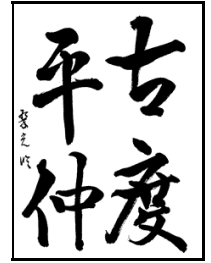 古度
平仲